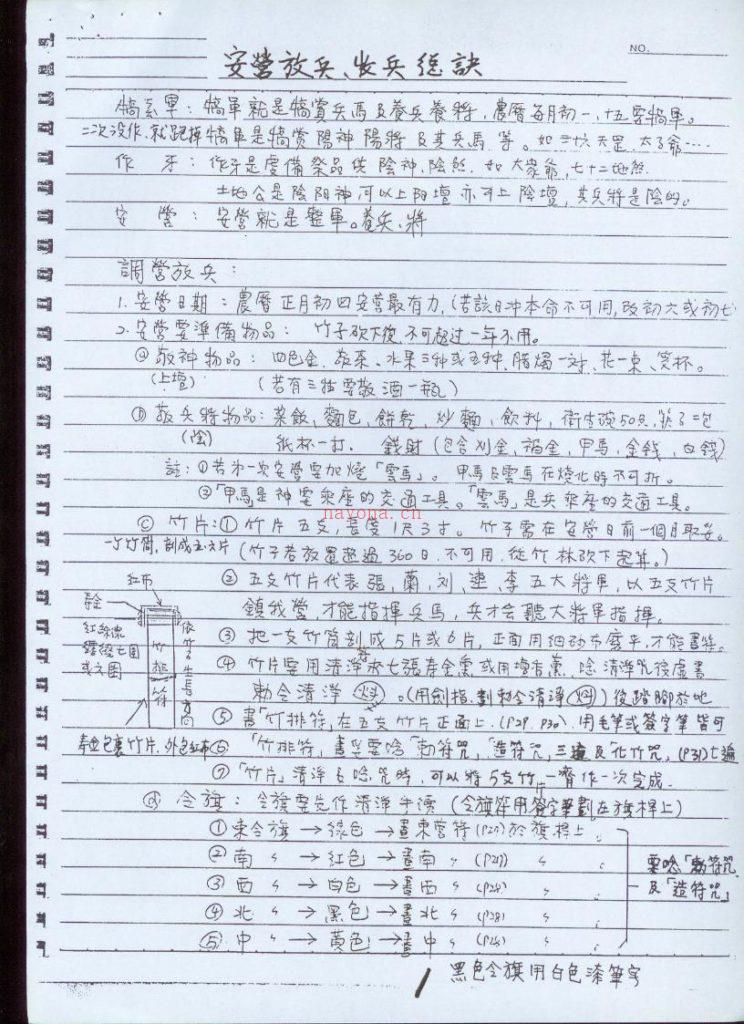 NO.
安營放兵、收兵總訣
犒軍：犒軍就是犒賞兵馬及養兵養將，農曆每月初一、十五要犒軍。
二次沒作，就跑掉犒軍是犒赏陽神陽將及其兵馬等。如三十六天罡，太子爺……
作 牙：作牙是虔備祭品供陰神、陰煞，如大眾爺，七十二地煞.
土地公是陰阳神可以上阳壇亦可上陰壇，其兵將是陰的。
安 營：安營就是整軍。養兵、將
調營放兵：
1. 安營日期：農曆正月初四安營最有力，(若該日冲本命不可用，改初六或初七
2. 安營要準備物品： 竹子砍下後，不可超过一年不用。
ⓐ敬神物品：四色金、發菜、水果三种或五种，腊燭一对、花一束、筊杯。
(上壇) (若有三牲要敬酒一瓶)
ⓑ敬兵將物品：菜飯，麵包，餅乾，炒麵，飲料，衛生碗50只，筷子一包
(陰) 紙杯一打. 錢財(包含刈金，福金，甲馬，金錢，白錢)
註：①若第一次安營要加燒「雲馬」。甲馬及雲馬在燒化時不可折。
②「甲馬是神要乘座的交通工具。「雲馬」是兵乘座的交通工具。
nayona.cn
ⓒ竹片：①竹片五支，長度1尺3寸。竹子需在安營日前一個月取妥。
一ケ竹筒，剖成五、六片(竹子若放置超過360日，不可用，從竹林砍下起算。)
②五支竹片代表張，蕭，刘，連，李五大將軍，以五支竹片
鎮我營，才能指揮兵馬，兵才会聽大將軍指揮。
③把一支竹筒剖成5片或6片，正面用細砂布磨平，才能畫符。
④竹片要用清淨水七張壽金薰或用壇香薰，唸清淨咒後虛書
勅令清淨。(用劍指劃勅令清淨)後踏腳於地
⑤書「竹排符」在五支竹片正面上。(P29. P30). 用毛筆或簽字筆皆可
⑥「竹排符」畫妥要唸「勅符咒」「造符咒」三遍及「化竹咒」(P31)七遍
⑦「竹片」清淨及唸咒時，可以將5支竹片一齊作一次完成.
紅布
壽金
紅絲線
繞七圈
或六圈
竹排符
依竹子生長方向
壽金包裹竹片.外包紅布
ⓓ令旗：令旗要先作清淨手續(令旗符用簽字筆劃在旗桿上)
①東令旗→綠色→畫東營符(P27)於旗桿上
②南 〃 →紅色→畫南 〃 (P27) 〃
③西 〃 →白色→畫西 〃 (P28) 〃
④北 〃 →黑色→畫北 〃 (P28) 〃
⑤中 〃 →黃色→畫中 〃 (P28) 〃
要唸「勅符咒」
及「造符咒」
黑色令旗用白色漆筆字
1